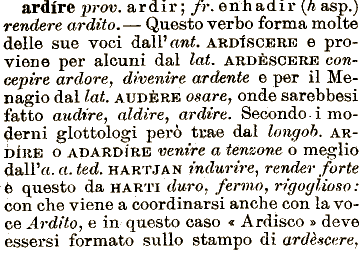 ardíre prov. ardir; fr. enhadir (h asp.)
rendere ardito. — Questo verbo forma molte
delle sue voci dall'ant. ARDÍSCERE e pro-
viene per alcuni dal lat. ARDÈSCERE con-
cepire ardore, divenire ardente e per il Me-
nagio dal lat. AUDÈRE osare, onde sarebbesi
fatto audire, aldire, ardire. Secondo i mo-
derni glottologi però trae dal longob. AR-
DÍRE o ADARDÍRE venire a tenzone o meglio
dall'a. a. ted. HARTJAN indurire, render forte
e questo da HARTI duro, fermo, rigoglioso:
con che viene a coordinarsi anche con la vo-
ce Ardito, e in questo caso « Ardisco » deve
essersi formato sullo stampo di ardèscere,